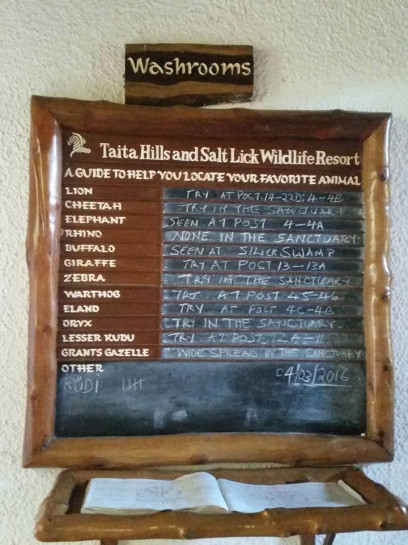 Washrooms
Taita Hills and Salt Lick Wildlife Resort
A GUIDE TO HELP YOU LOCATE YOUR FAVORITE ANIMAL
LION TRY AT POST 14-22D; 4-4B
CHEETAH TRY IN THE SANCTUARY
ELEPHANT SEEN AT POST 4-4A
RHINO NONE IN THE SANCTUARY.
BUFFALO SEEN AT SWAMP
GIRAFFE TRY AT POST 13-13A
ZEBRA TRY IN THE SANCTUARY
WARTHOG AT POST 45-46
ELAND TRY AT POST 4C-4B
ORYX TRY IN THE SANCTUARY.
LESSER KUDU TRY AT POST
GRANTS GAZELLE WIDE SPREAD IN THE SANCTUARY
OTHER
04/03/2016